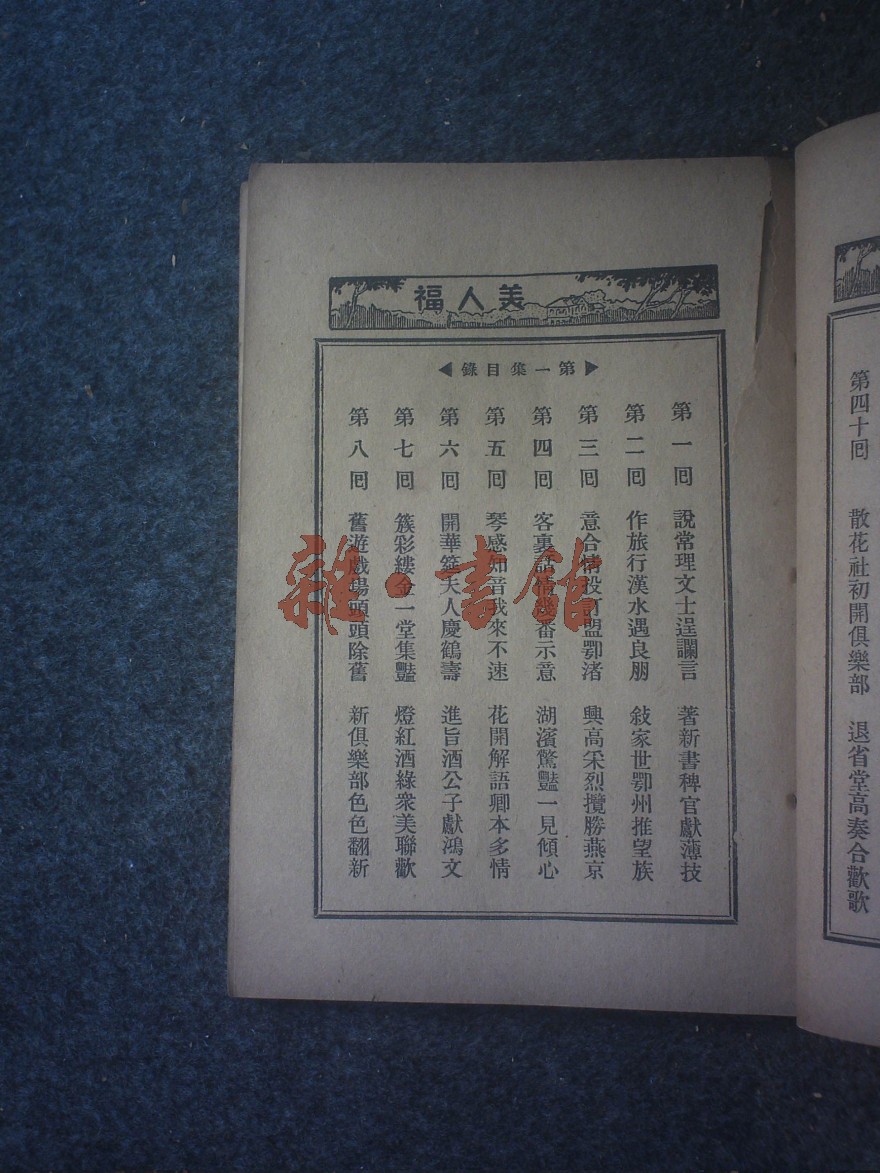 美人福
第一集目錄
第一囘 說常理文士逞讕言 著新書稗官獻薄技
第二囘 作旅行漢水遇良朋 敍家世鄂州推望族
第三囘 意合情投訂盟鄂渚 興高采烈攬勝燕京
第四囘 客裏話情幾番示意 湖濱驚豔一見傾心
第五囘 琴感知音我來不速 花開解語卿本多情
第六囘 開華筵夫人慶鶴壽 進旨酒公子獻鴻文
第七囘 簇彩縷金一堂集豔 燈紅酒綠衆美聯歡
第八囘 舊遊戲場頭頭除舊 新俱樂部色色翻新
第四十囘 散花社初開俱樂部 退省堂高奏合歡歌
雜·書館